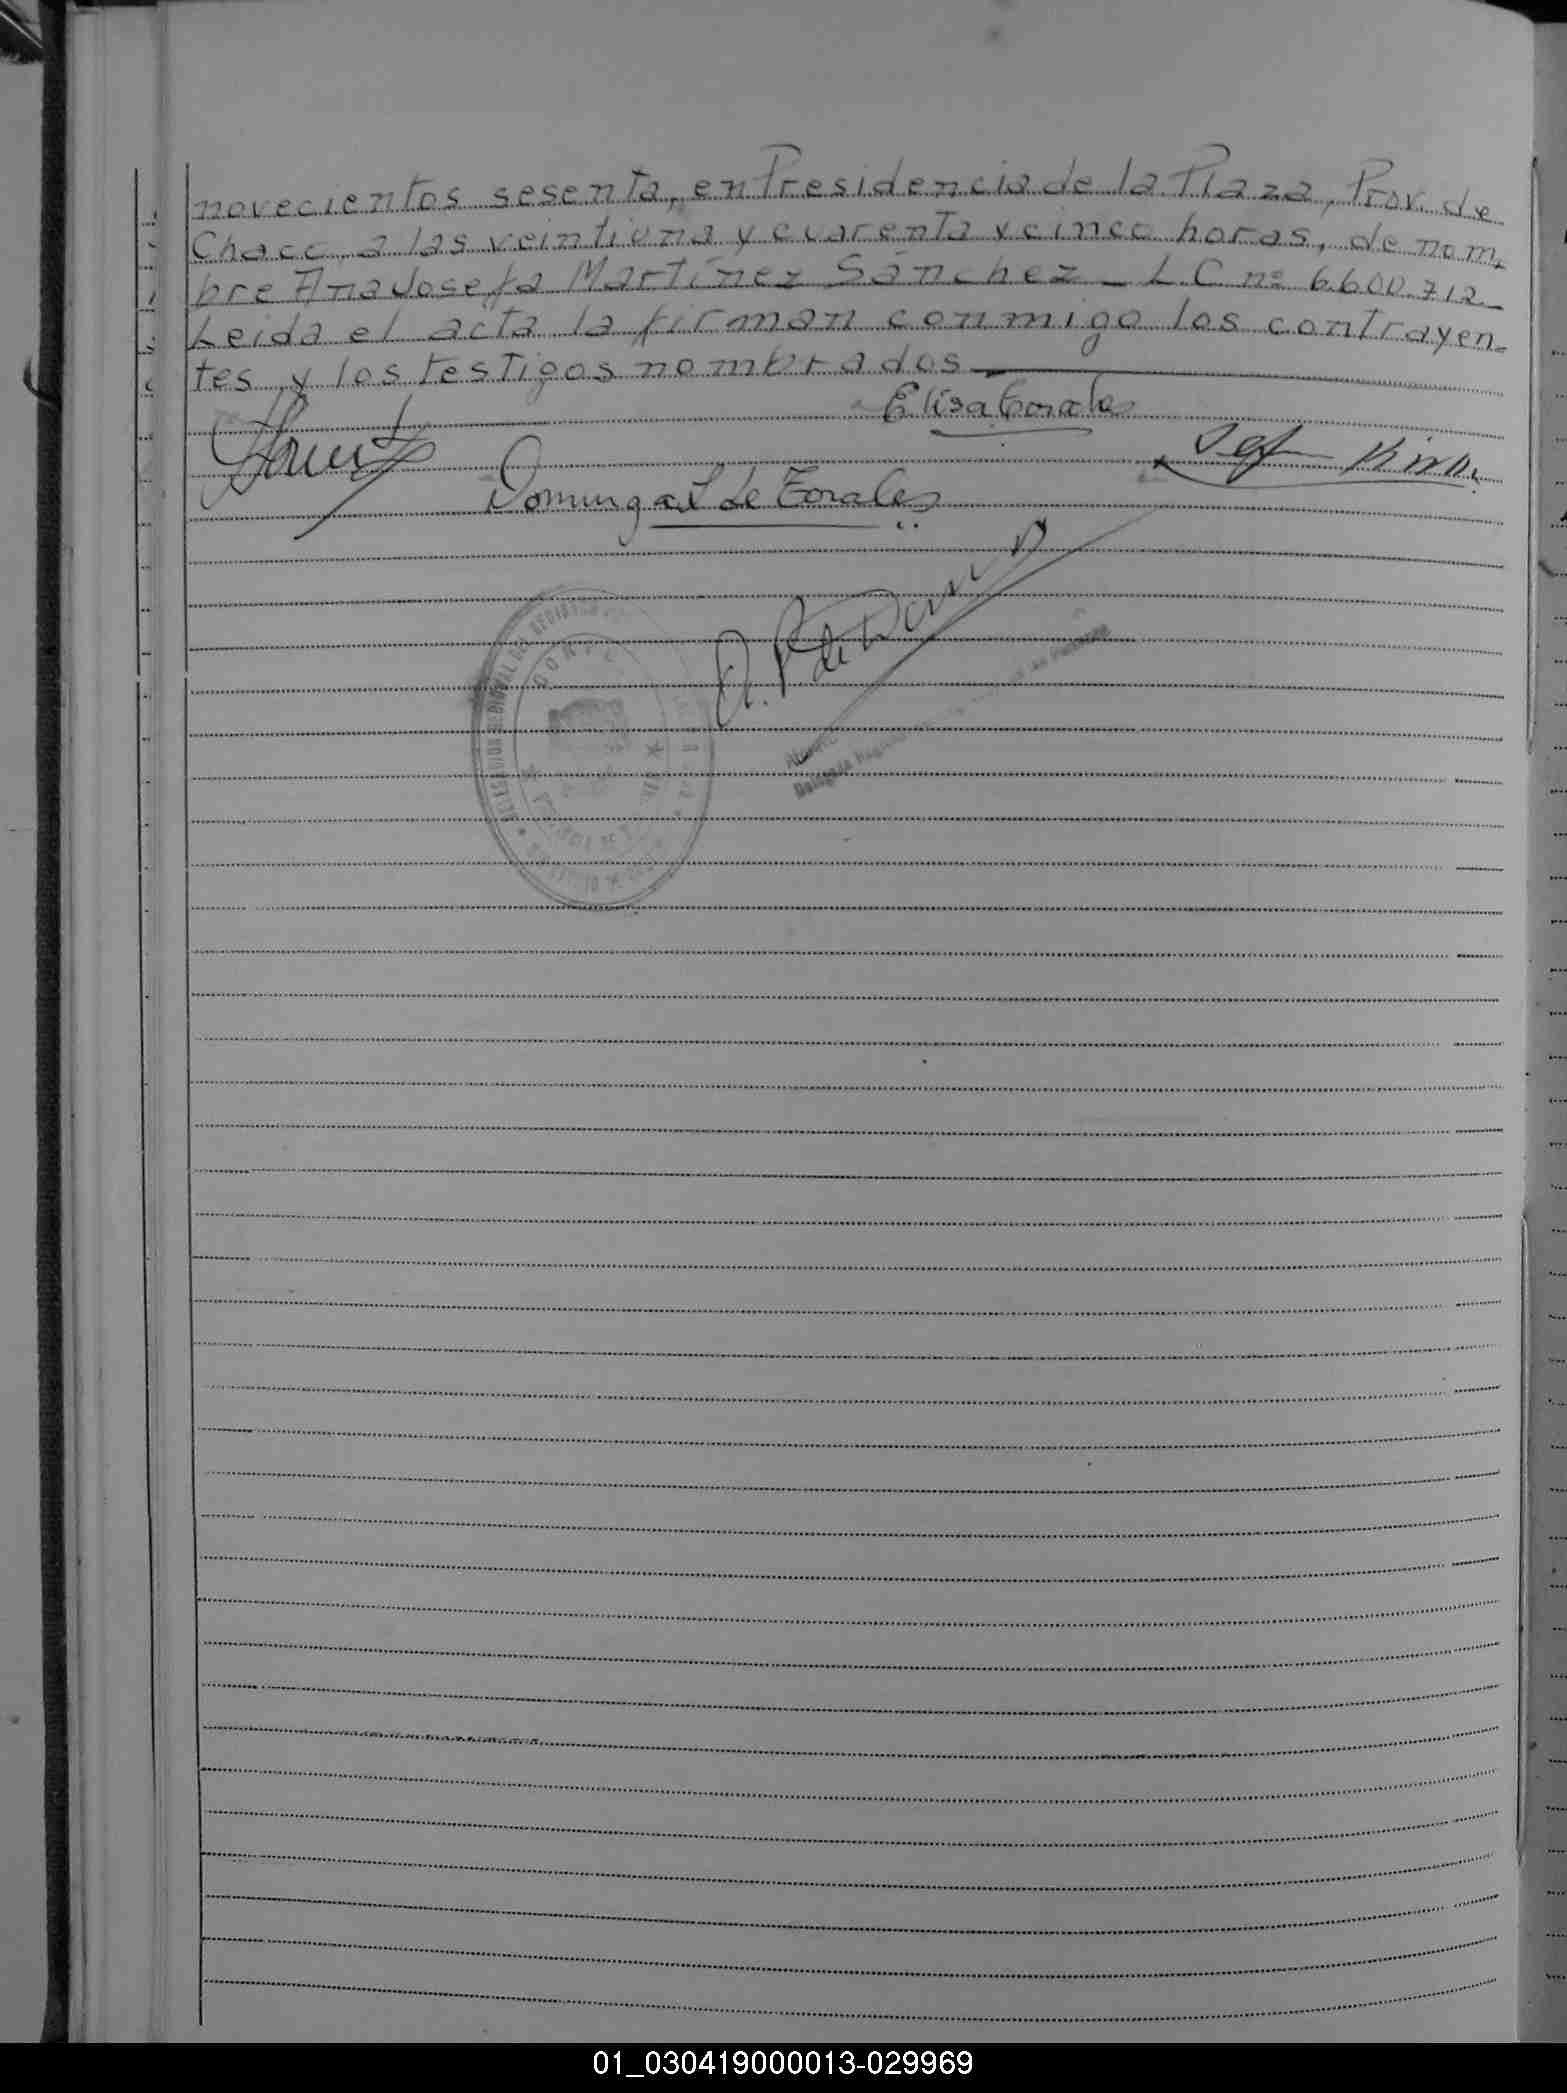 novecientos sesenta, en Presidencia de la Plaza, Prov. de
Chaco, a las veintiuna y cuarenta y cinco horas, de nom,
bre Ana Josefa Martínez Sánchez - L.C. nº 6.600.712.-
Leida el acta la firman conmigo los contrayen-
tes y los testigos nombrados
Elisa Torales
Dominga de Torales
Delegada
01_030419000013-029969